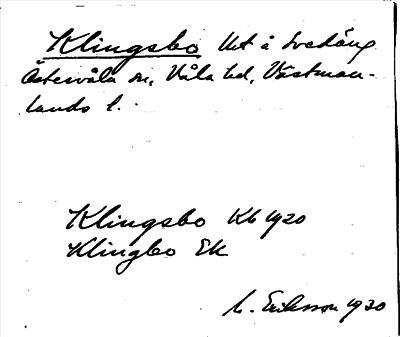 Klingsbo Utt å Svedäng
Östervåla sn, Våla hd, Västman-
lands l.
Klingsbo Kb 1920
Klingbo Ek
Eriksson 1930